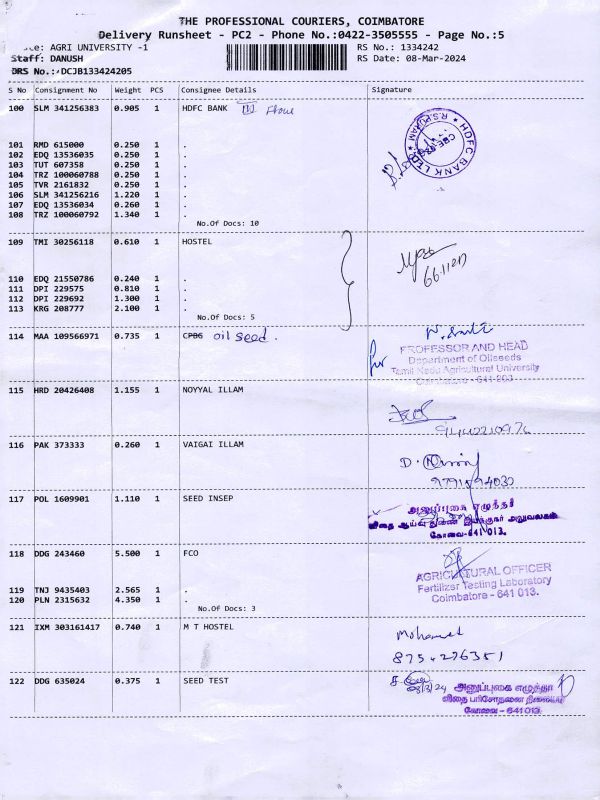 THE PROFESSIONAL COURIERS, COIMBATORE
Delivery Runsheet - PC2 - Phone No.:0422-3505555 - Page No.:5
te: AGRI UNIVERSITY -1 RS No.: 1334242
Staff: DANUSH RS Date: 08-Mar-2024
DRS No.:DCJB133424205
S No Consignment No Weight PCS Consignee Details Signature
100 SLM 341256383 0.905 1 HDFC BANK
HDFC BANK LTD R.S. PURAM
101 RMD 615000 0.250 1 .
102 EDQ 13536035 0.250 1 .
103 TUT 607358 0.250 1 .
104 TRZ 100060788 0.250 1 .
105 TVR 2161832 0.250 1 .
106 SLM 341256216 1.220 1 .
107 EDQ 13536034 0.260 1 .
108 TRZ 100060792 1.340 1 .
No.Of Docs: 10
109 TMI 30256118 0.610 1 HOSTEL
110 EDQ 21550786 0.240 1 .
111 DPI 229575 0.810 1 .
112 DPI 229692 1.300 1 .
113 KRG 208777 2.100 1 .
No.Of Docs: 5
114 MAA 109566971 0.735 1 CPBG oil seed.
for PROFESSOR AND HEAD
Department of Oilseeds
Tamil Nadu Agricultural University
Coimbatore - 641 003
115 HRD 20426408 1.155 1 NOYYAL ILLAM
116 PAK 373333 0.260 1 VAIGAI ILLAM
117 POL 1609901 1.110 1 SEED INSEP
அனுப்புகை எழுத்தர்
விதை ஆய்வு துணை இயக்குநர் அலுவலகம்
கோவை-641 013.
118 DDG 243460 5.500 1 FCO
AGRICULTURAL OFFICER
Fertilizer Testing Laboratory
Coimbatore - 641 013.
119 TNJ 9435403 2.565 1 .
120 PLN 2315632 4.350 1 .
No.Of Docs: 3
121 IXM 303161417 0.740 1 M T HOSTEL
Mohamed
122 DDG 635024 0.375 1 SEED TEST
8/3/24 அனுப்புகை எழுத்தர்
விதை பரிசோதனை நிலையம்
கோவை - 641 013.